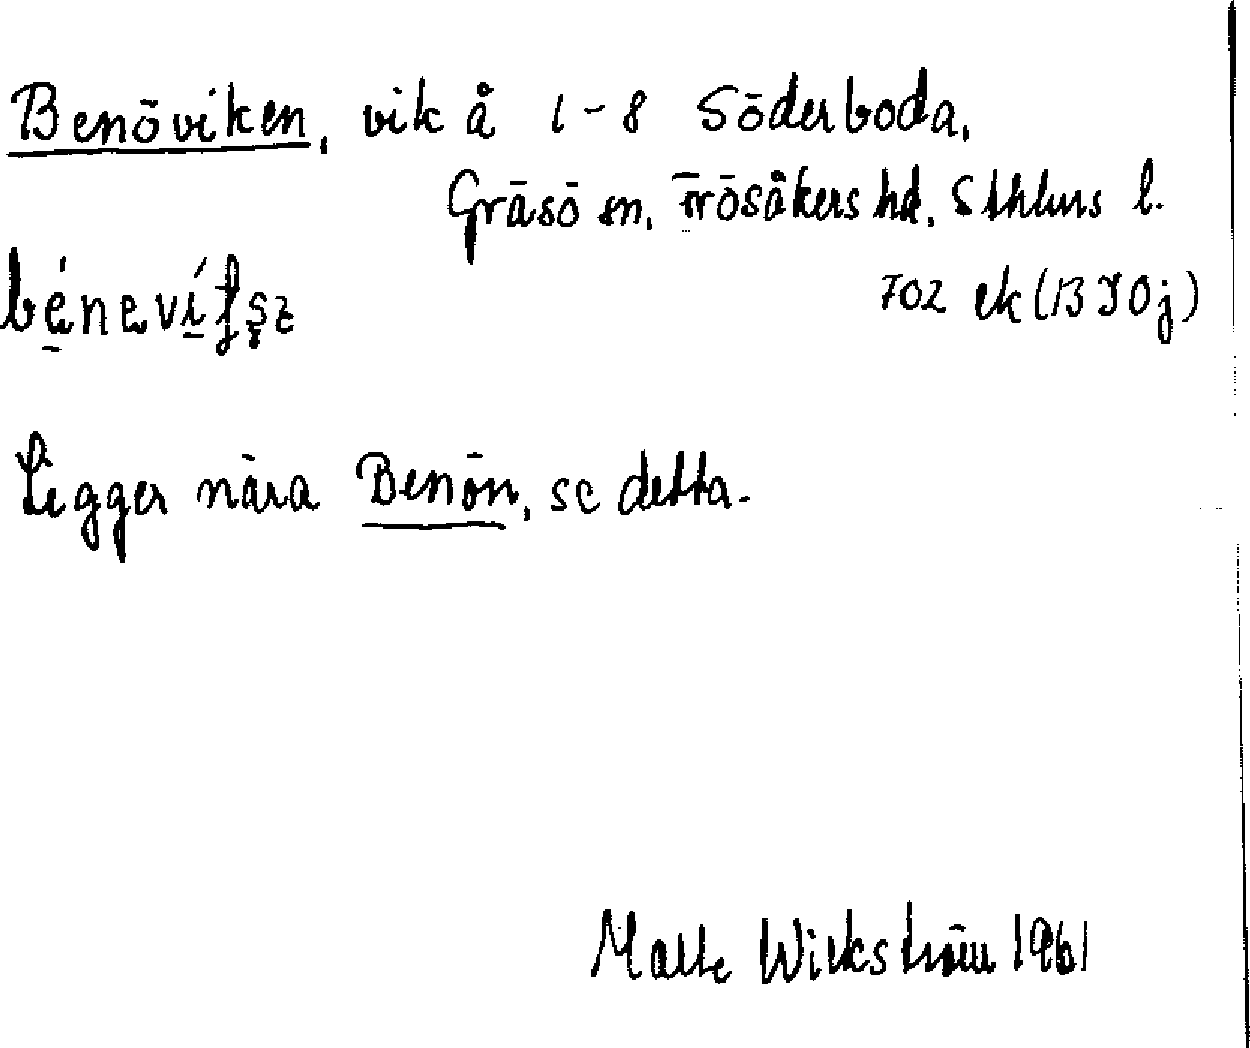 Benöviken, vik å 1-8 Söderboda,
Gräsö sn, Frösåkers hd, Sthlms l.
702 ek (13 I 0j)
Ligger nära Benön, se detta.
Malte Wickström 1961